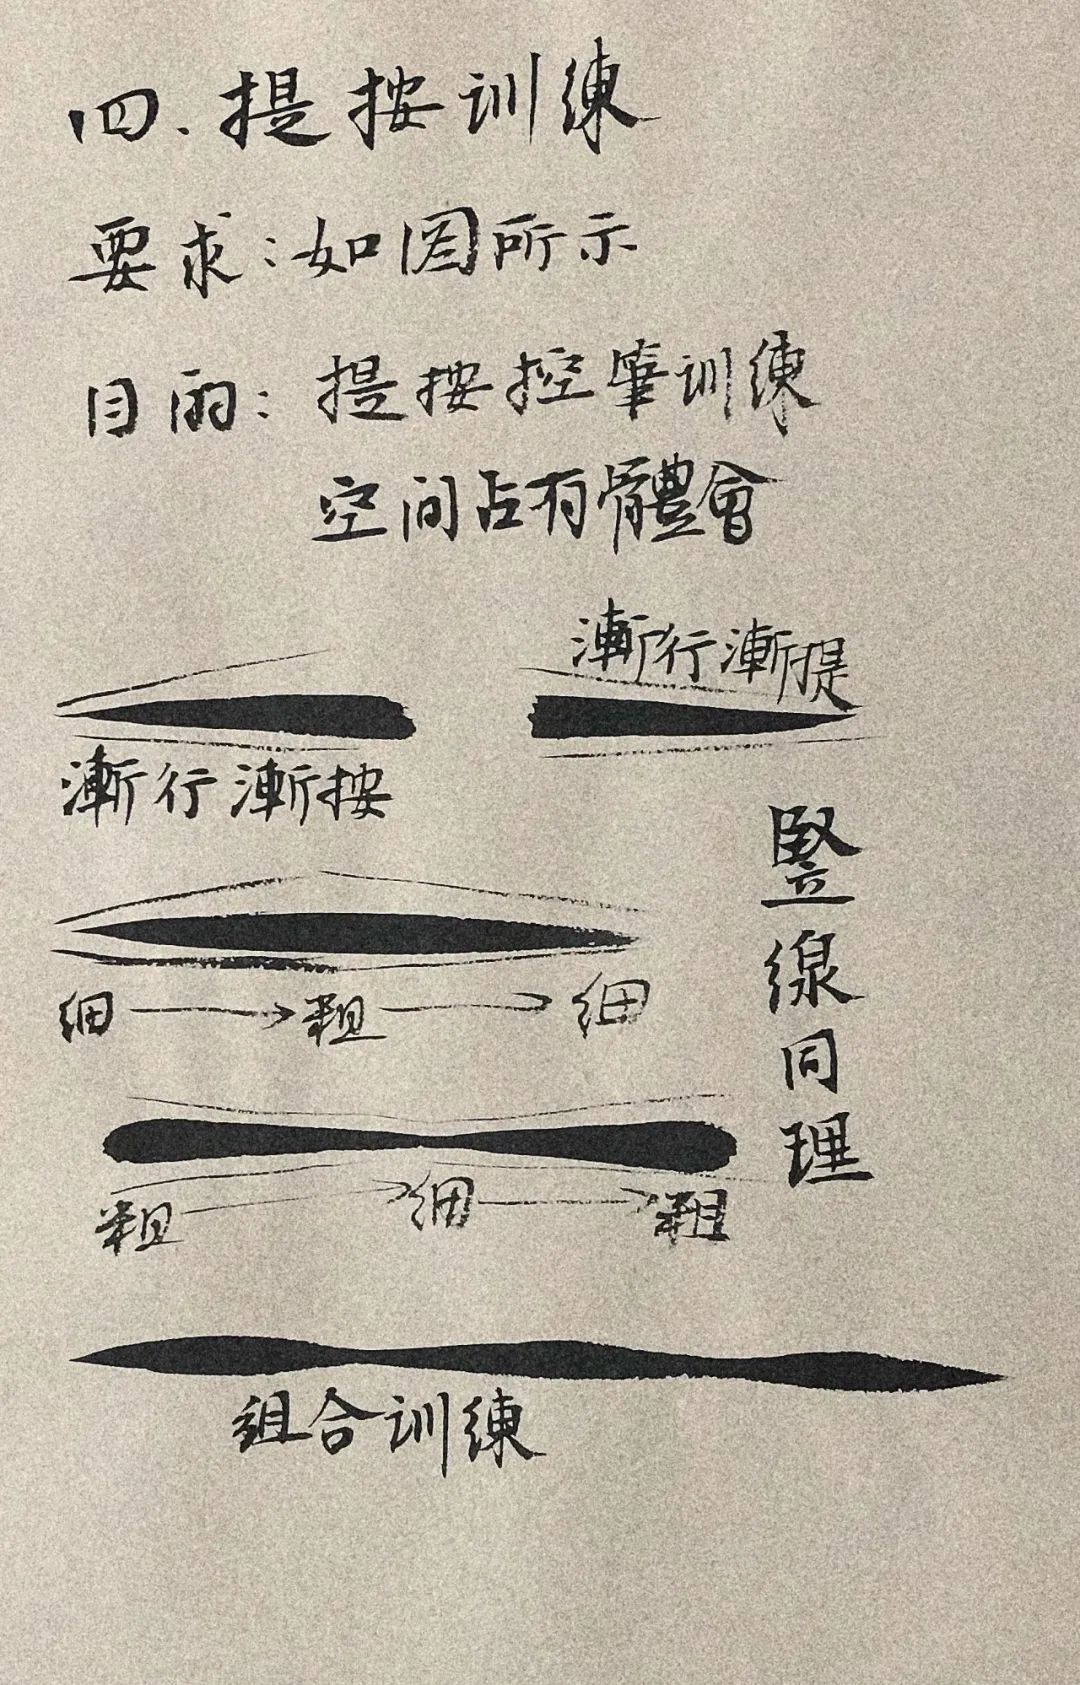 四.提按训練
要求:如图所示
目的:提按控筆训練
空间占有體會
漸行漸提
漸行漸按
細→粗→細
粗→細→粗
豎線同理
組合训練